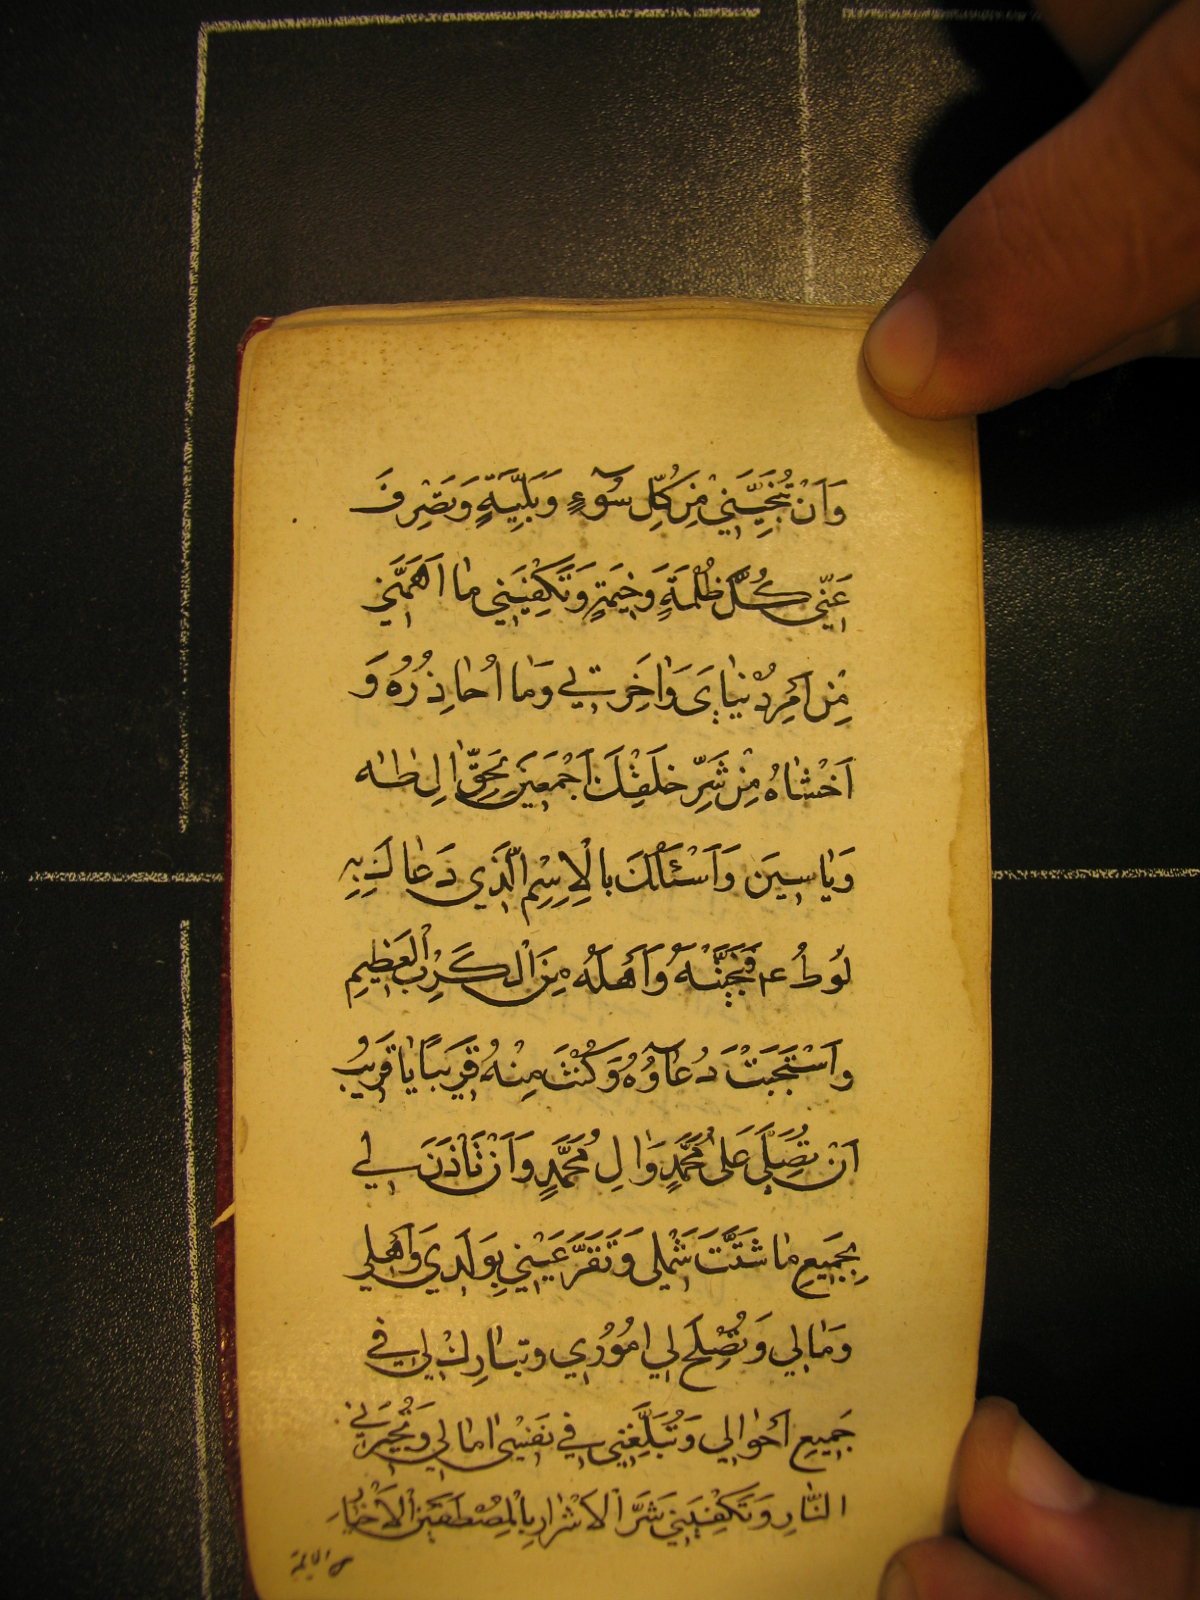 وَاَنْ تُنَجِّيَنِي مِنْ كُلِّ سُوۤءٍ وَبَلِيَّةٍ وَتَصْرِفَ
عَنِّي كُلَّ ظُلْمَةٍ وَخِيمَةٍ وَتَكْفِيَنِي مٰا اَهَمَّنِي
مِنْ اَمْرِ دُنْيٰايَ وَاٰخِرَتِي وَمٰا اُحٰاذِرُهُ وَ
اَخْشٰاهُ مِنْ شَرِّ خَلْقِكَ اَجْمَعِينَ بِحَقِّ اٰلِ طٰهٰ
وَيٰاسِينَ وَاَسْئَلُكَ بِالْاِسْمِ الَّذِي دَعٰاكَ بِهِ
لُوطُ ع فَنَجَّيْتَهُ وَاَهْلَهُ مِنَ الْكَرْبِ الْعَظِيمِ
وَاَسْتَجَبْتَ دُعٰاۤؤُهُ وَكُنْتَ مِنْهُ قَرِيبًا يٰا قَرِيبُ
اَنْ تُصَلِّيَ عَلىٰ مُحَمَّدٍ وَاٰلِ مُحَمَّدٍ وَاَنْ تَأْذَنَ لِي
بِجَمِيعِ مٰا شَتَّتَ شَمْلِي وَتَقَرَّ عَيْنِي بِوَلَدِي وَاَهْلِي
وَمٰالِي وَتُصْلِحَ لِي اُمُورِي وَتُبٰارِكَ لِي فِي
جَمِيعِ اَحْوٰالِي وَتُبَلِّغَنِي فِي نَفْسِي اٰمٰالِي وَتُجِيرَنِي مِنَ
النّٰارِ وَتَكْفِيَنِي شَرَّ الْاَشْرٰارِ بِالْمُصْطَفَيْنَ الْاَخْيٰارِ